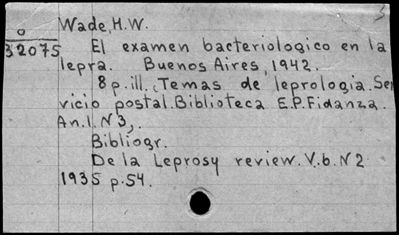 Wade, H.W.
0
32075
El examen bacteriologico en la
lepra. Buenos Aires, 1942.
8 p. ill. (Temas de leprologia. Ser
vicio postal. Biblioteca E.P. Fidanza.
An. 1. N 3,.
Bibliogr.
De la Leprosy review. V. 6. N 2
1935 p. 54.